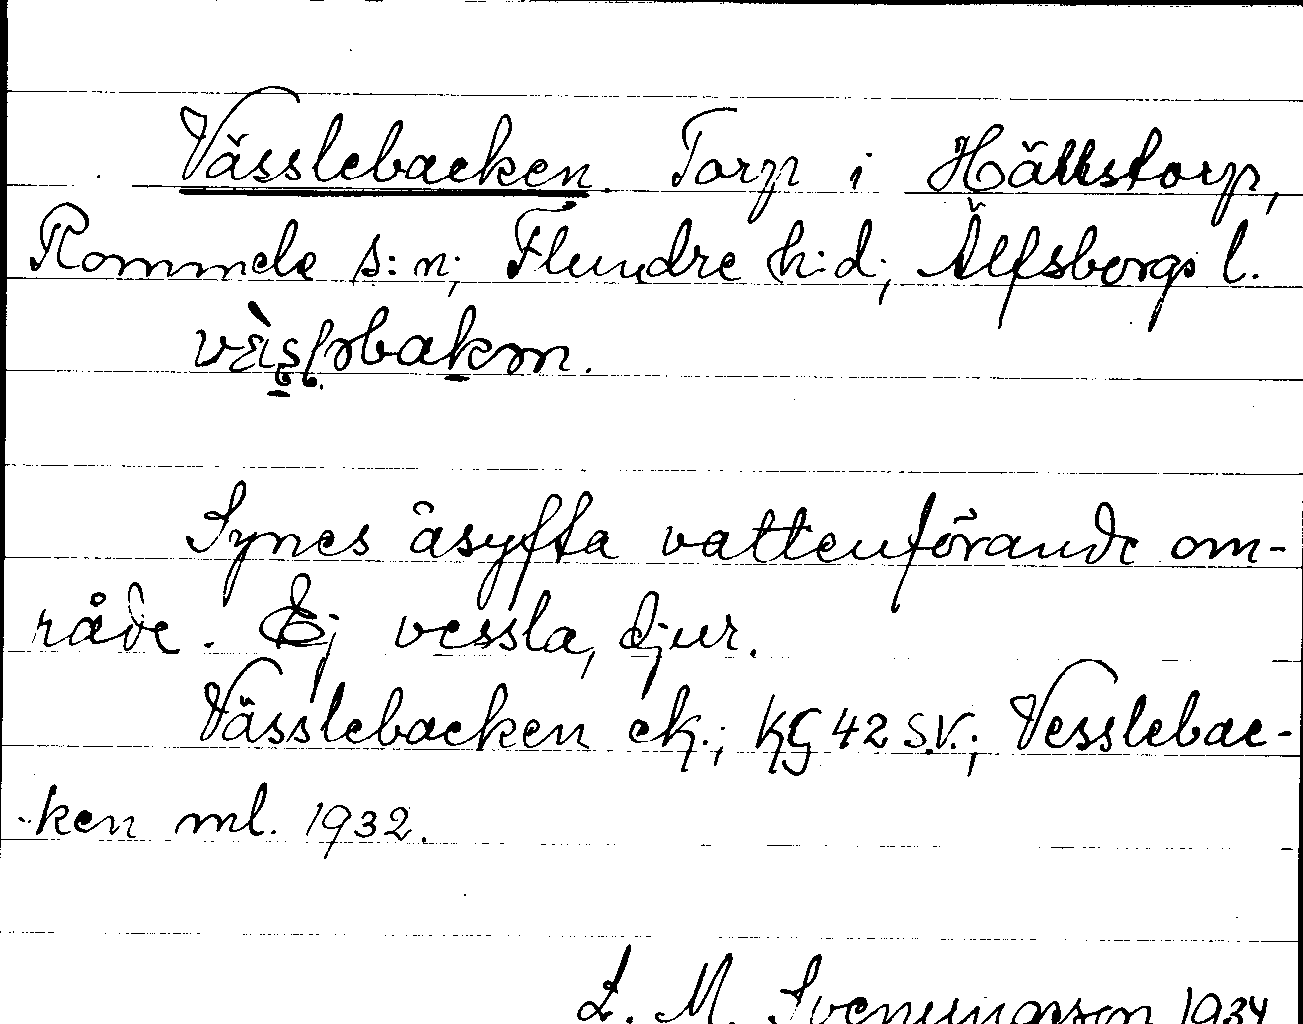 Vässlebacken. Torp i Hällstorp,
Rommele s:n; Flundre h:d; Älfsborgs l.
Synes åsyfta vattenförande om-
råde. Ej vessla, djur.
Vässlebacken ek.; KG 42 S.V.; Vesslebac-
ken ml. 1932.
L. M. Svenungsson 1934